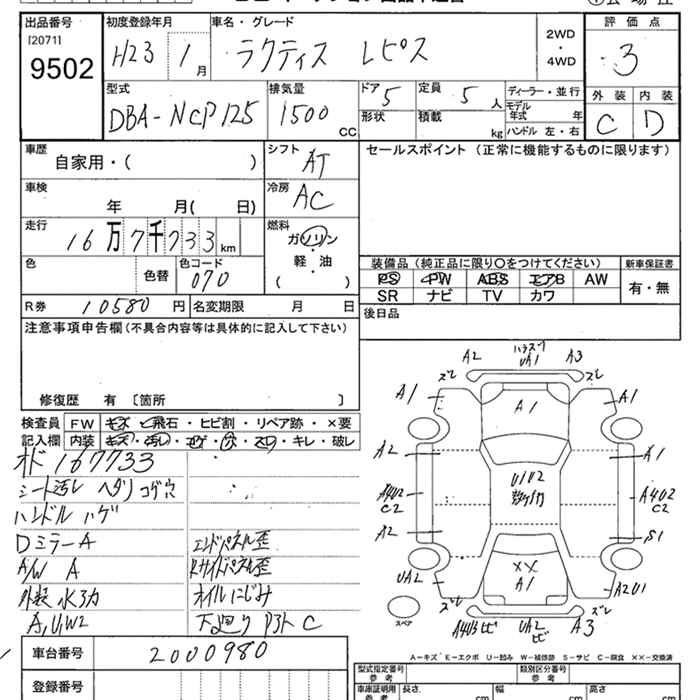 出品番号 初度登録年月 車名・グレード 評価点
[20711]
9502 H23 1月 ラクティス レピス 2WD・4WD 3
型式 排気量 ドア 定員 ディーラー・並行 外装 内装
DBA-NCP125 1500CC 5 5人 モデル年式 年 C D
形状 積載 kg ハンドル 左・右
車歴 シフト セールスポイント (正常に機能するものに限ります)
自家用・( ) AT
車検 冷房
年 月( 日) AC
走行 燃料
16万7千733km ガソリン
軽・油
( )
色 色替 色コード 070
装備品 (純正品に限り○をつけてください) 新車保証書
PS PW ABS エアB AW 有・無
SR ナビ TV カワ
R券 10580円 名変期限 月 日 後日品
注意事項申告欄(不具合内容等は具体的に記入して下さい)
修復歴 有 〔箇所 〕
検査員 FW キズ・飛石・ヒビ割・リペア跡・×要
記入欄 内装 キズ・汚レ・コゲ・穴・スレ・キレ・破レ
167733
シート汚レ ヘタリ コゲ穴
ハンドル ハゲ
Dミラー A エンドパネル歪
A/W A Rサイドパネル歪
外装 水アカ オイルにじみ
A,U,W2 下廻り P3ト C
A2 UA1 A3
ズレ ズレ
A1 A1 A1
A2 A1
U1U2
A4U2 C2 A4U2 C2
A2 S1
XX
A1
UA2 A2U1
ズレ ズレ
スペア A4U3 ヒビ UA2 ヒビ A3
A-キズ E-エクボ U-凹み W-補修跡 S-サビ C-腐食 ××-交換済
車台番号 2000980
登録番号
型式指定番号 参考 類別区分番号 参考
車庫証明用 参考 長さ cm 幅 cm 高さ cm